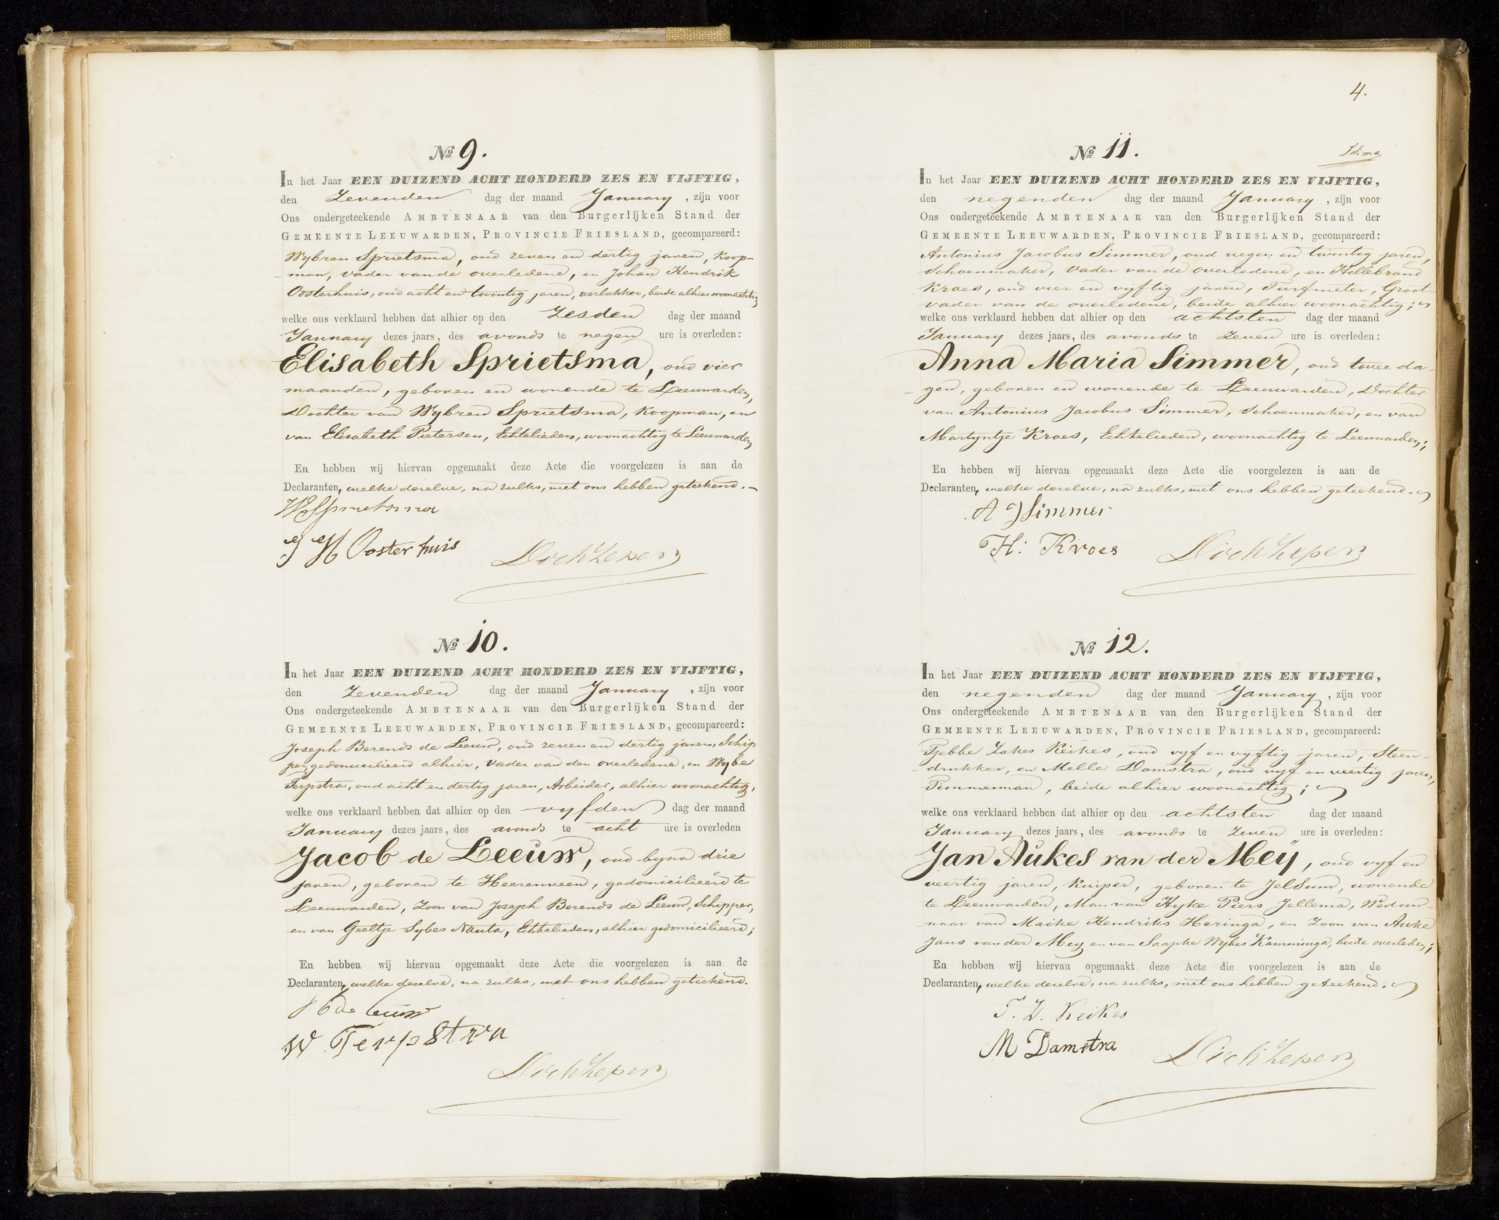 No 9.
In het Jaar EEN DUIZEND ACHT HONDERD ZES EN VIJFTIG,
den Zevenden dag der maand January, zijn voor
Ons ondergeteekende AMBTENAAR van den Burgerlijken Stand der
GEMEENTE LEEUWARDEN, PROVINCIE FRIESLAND, gecompareerd:
Wybren Sprietsma, oud zeven en dertig jaren, koop-
man, vader van de overledene, en Johan Hendrik
Oosterhuis, oud acht en twintig jaren, verlakker, beide alhier woonachtig
welke ons verklaard hebben dat alhier op den Zesden dag der maand
January dezes jaars, des avonds te negen ure is overleden:
Elisabeth Sprietsma, oud vier
maanden, geboren en wonende te Leeuwarden,
Dochter van Wybren Sprietsma, koopman, en
van Elisabeth Pietersen, Echtelieden, woonachtig te Leeuwarden,
En hebben wij hiervan opgemaakt deze Acte die voorgelezen is aan de
Declaranten, welke dezelve, na zulks, met ons hebben geteekend.
W Sprietsma
J H Oosterhuis
No 10.
In het Jaar EEN DUIZEND ACHT HONDERD ZES EN VIJFTIG,
den Zevenden dag der maand January, zijn voor
Ons ondergeteekende AMBTENAAR van den Burgerlijken Stand der
GEMEENTE LEEUWARDEN, PROVINCIE FRIESLAND, gecompareerd:
Joseph Berends de Leeuw, oud zeven en dertig jaren, Schip
per, gedomicilieerd alhier, vader van den overledene, en Wybe
Terpstra, oud acht en dertig jaren, Arbeider, alhier woonachtig,
welke ons verklaard hebben dat alhier op den vyfden dag der maand
January dezes jaars, des avonds te acht ure is overleden
Jacob de Leeuw, oud byna drie
jaren, geboren te Heerenveen, gedomicilieerd te
Leeuwarden, Zoon van Joseph Berends de Leeuw, Schipper,
en van Geeltje Sybes Nauta, Echtelieden, alhier gedomicilieerd;
En hebben wij hiervan opgemaakt deze Acte die voorgelezen is aan de
Declaranten, welke dezelve, na zulks, met ons hebben geteekend.
de Leeuw
W Terpstra
4.
No 11.
In het Jaar EEN DUIZEND ACHT HONDERD ZES EN VIJFTIG,
den negenden dag der maand January, zijn voor
Ons ondergeteekende AMBTENAAR van den Burgerlijken Stand der
GEMEENTE LEEUWARDEN, PROVINCIE FRIESLAND, gecompareerd:
Antonius Jacobus Simmer, oud negen en twintig jaren,
Schoenmaker, Vader van de overledene, en Hillebrand
Kroes, oud vier en vyftig jaren, Turfmeter, Groot
vader van de overledene, beide alhier woonachtig;
welke ons verklaard hebben dat alhier op den achtsten dag der maand
January dezes jaars, des avonds te Zeven ure is overleden:
Anna Maria Simmer, oud twee da-
gen, geboren en wonende te Leeuwarden, Dochter
van Antonius Jacobus Simmer, Schoenmaker, en van
Martyntje Kroes, Echtelieden, woonachtig te Leeuwarden;
En hebben wij hiervan opgemaakt deze Acte die voorgelezen is aan de
Declaranten, welke dezelve, na zulks, met ons hebben geteekend.
A J Simmer
H: Kroes
No 12.
In het Jaar EEN DUIZEND ACHT HONDERD ZES EN VIJFTIG,
den negenden dag der maand January, zijn voor
Ons ondergeteekende AMBTENAAR van den Burgerlijken Stand der
GEMEENTE LEEUWARDEN, PROVINCIE FRIESLAND, gecompareerd:
Tjebbe Zakes Keikes, oud vyf en vyftig jaren, Steen-
drukker, en Melle Damstra, oud vyf en veertig jaren,
Timmerman, beide alhier woonachtig;
welke ons verklaard hebben dat alhier op den achtsten dag der maand
January dezes jaars, des avonds te Zeven ure is overleden:
Jan Aukes van der Meÿ, oud vyf en
veertig jaren, Kuiper, geboren te Jelsum, wonende
te Leeuwarden, Man van Hyke Piers Jellema, Weduw-
naar van Maike Hendriks Heringa, en Zoon van Auke
Jans van der Mey en van Saapke Wybes Kamminga, beide overleden;
En hebben wij hiervan opgemaakt deze Acte die voorgelezen is aan de
Declaranten, welke dezelve, na zulks, met ons hebben geteekend.
T. Z. Keikes
M Damstra